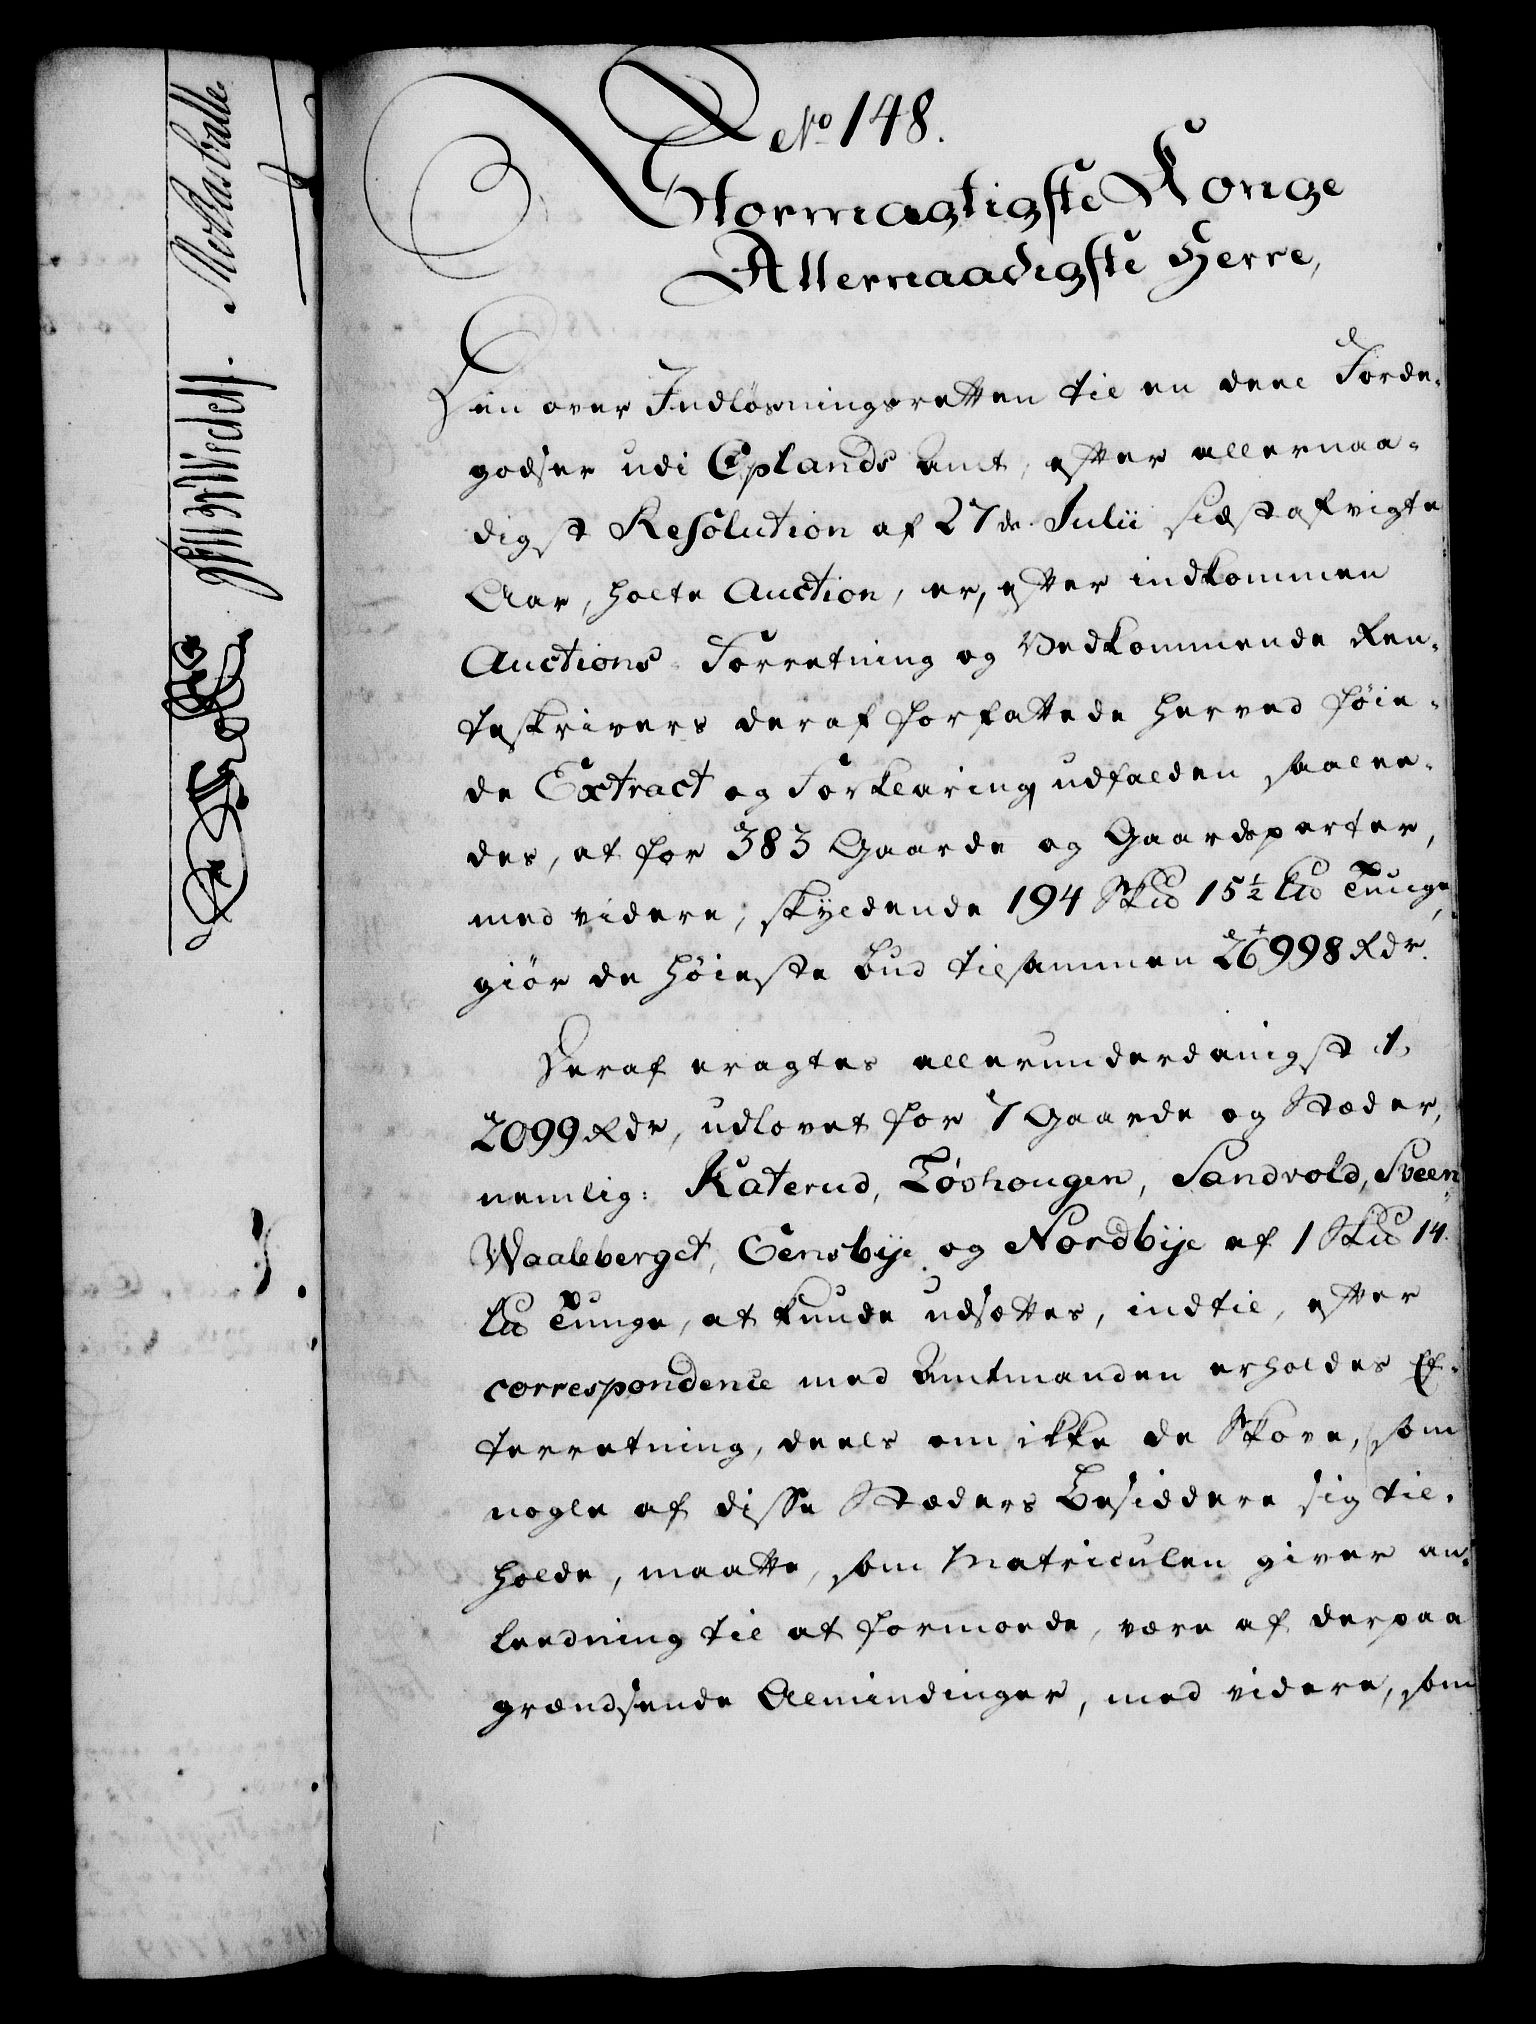 No 148.
Stormægtigste Konge
Allernaadigste Herre,
Den over Indløsningsretten til en deel Jorde-
godser udi Oplands Amt, efter allernaa-
digst Resolution af 27de Julii sidstafvigte
Aar, holte Auction, er, efter indkommen
Auctions-Forretning og Vedkommende Ren-
teskrivers deraf forfattede herved føie-
de Extract og Forklaring udfalden saalee-
des, at for 383 Gaarde og Gaardeparter,
med videre, skyldende 194 Skd 15½ Ld Tunge,
giør de høieste Bud tilsammen 26998 Rdr.
Deraf eragtes allerunderdanigst 1,
2099 Rdr, udlovet for 7 Gaarde og Stæder,
nemlig: Raterud, Løvhougen, Sandvold, Sveen
Waaleberget, Eensbye og Nordbye af 1 Skd 14.
Ld Tunge, at kunde udsættes, indtil, efter
correspondence med Amtmanden erholdes Ef-
terretning, deels om ikke de Skove, som
nogle af disse Stæders Besiddere sig til-
holde, maatte, som Matriculen giver an-
leedning til at formode, være af derpaa
grændsende Almindinger, med videre, som